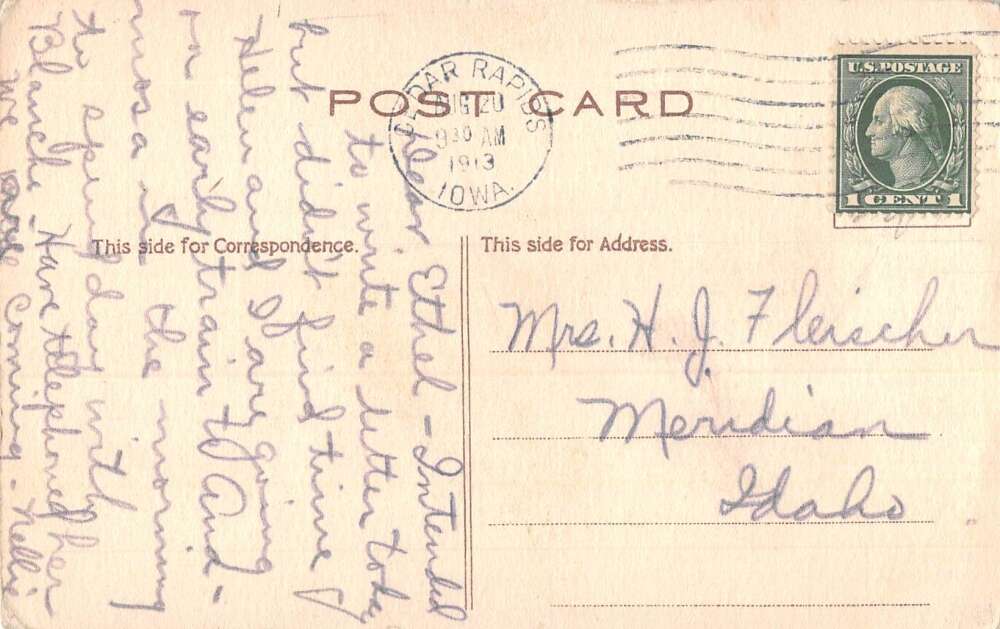 POST CARD
CEDAR RAPIDS
AUG 20
9 30 AM
1913
IOWA.
U.S. POSTAGE
1 CENT 1
This side for Correspondence.
This side for Address.
Dear Ethel - Intended
to write a letter today
but didn't find time
Helen and I are going
on early train to And-
mosa in the morning
to spend day with
Blanche - Have telephoned her
we are coming - Nellie
Mrs. H. J. Fleischer
Meridian
Idaho